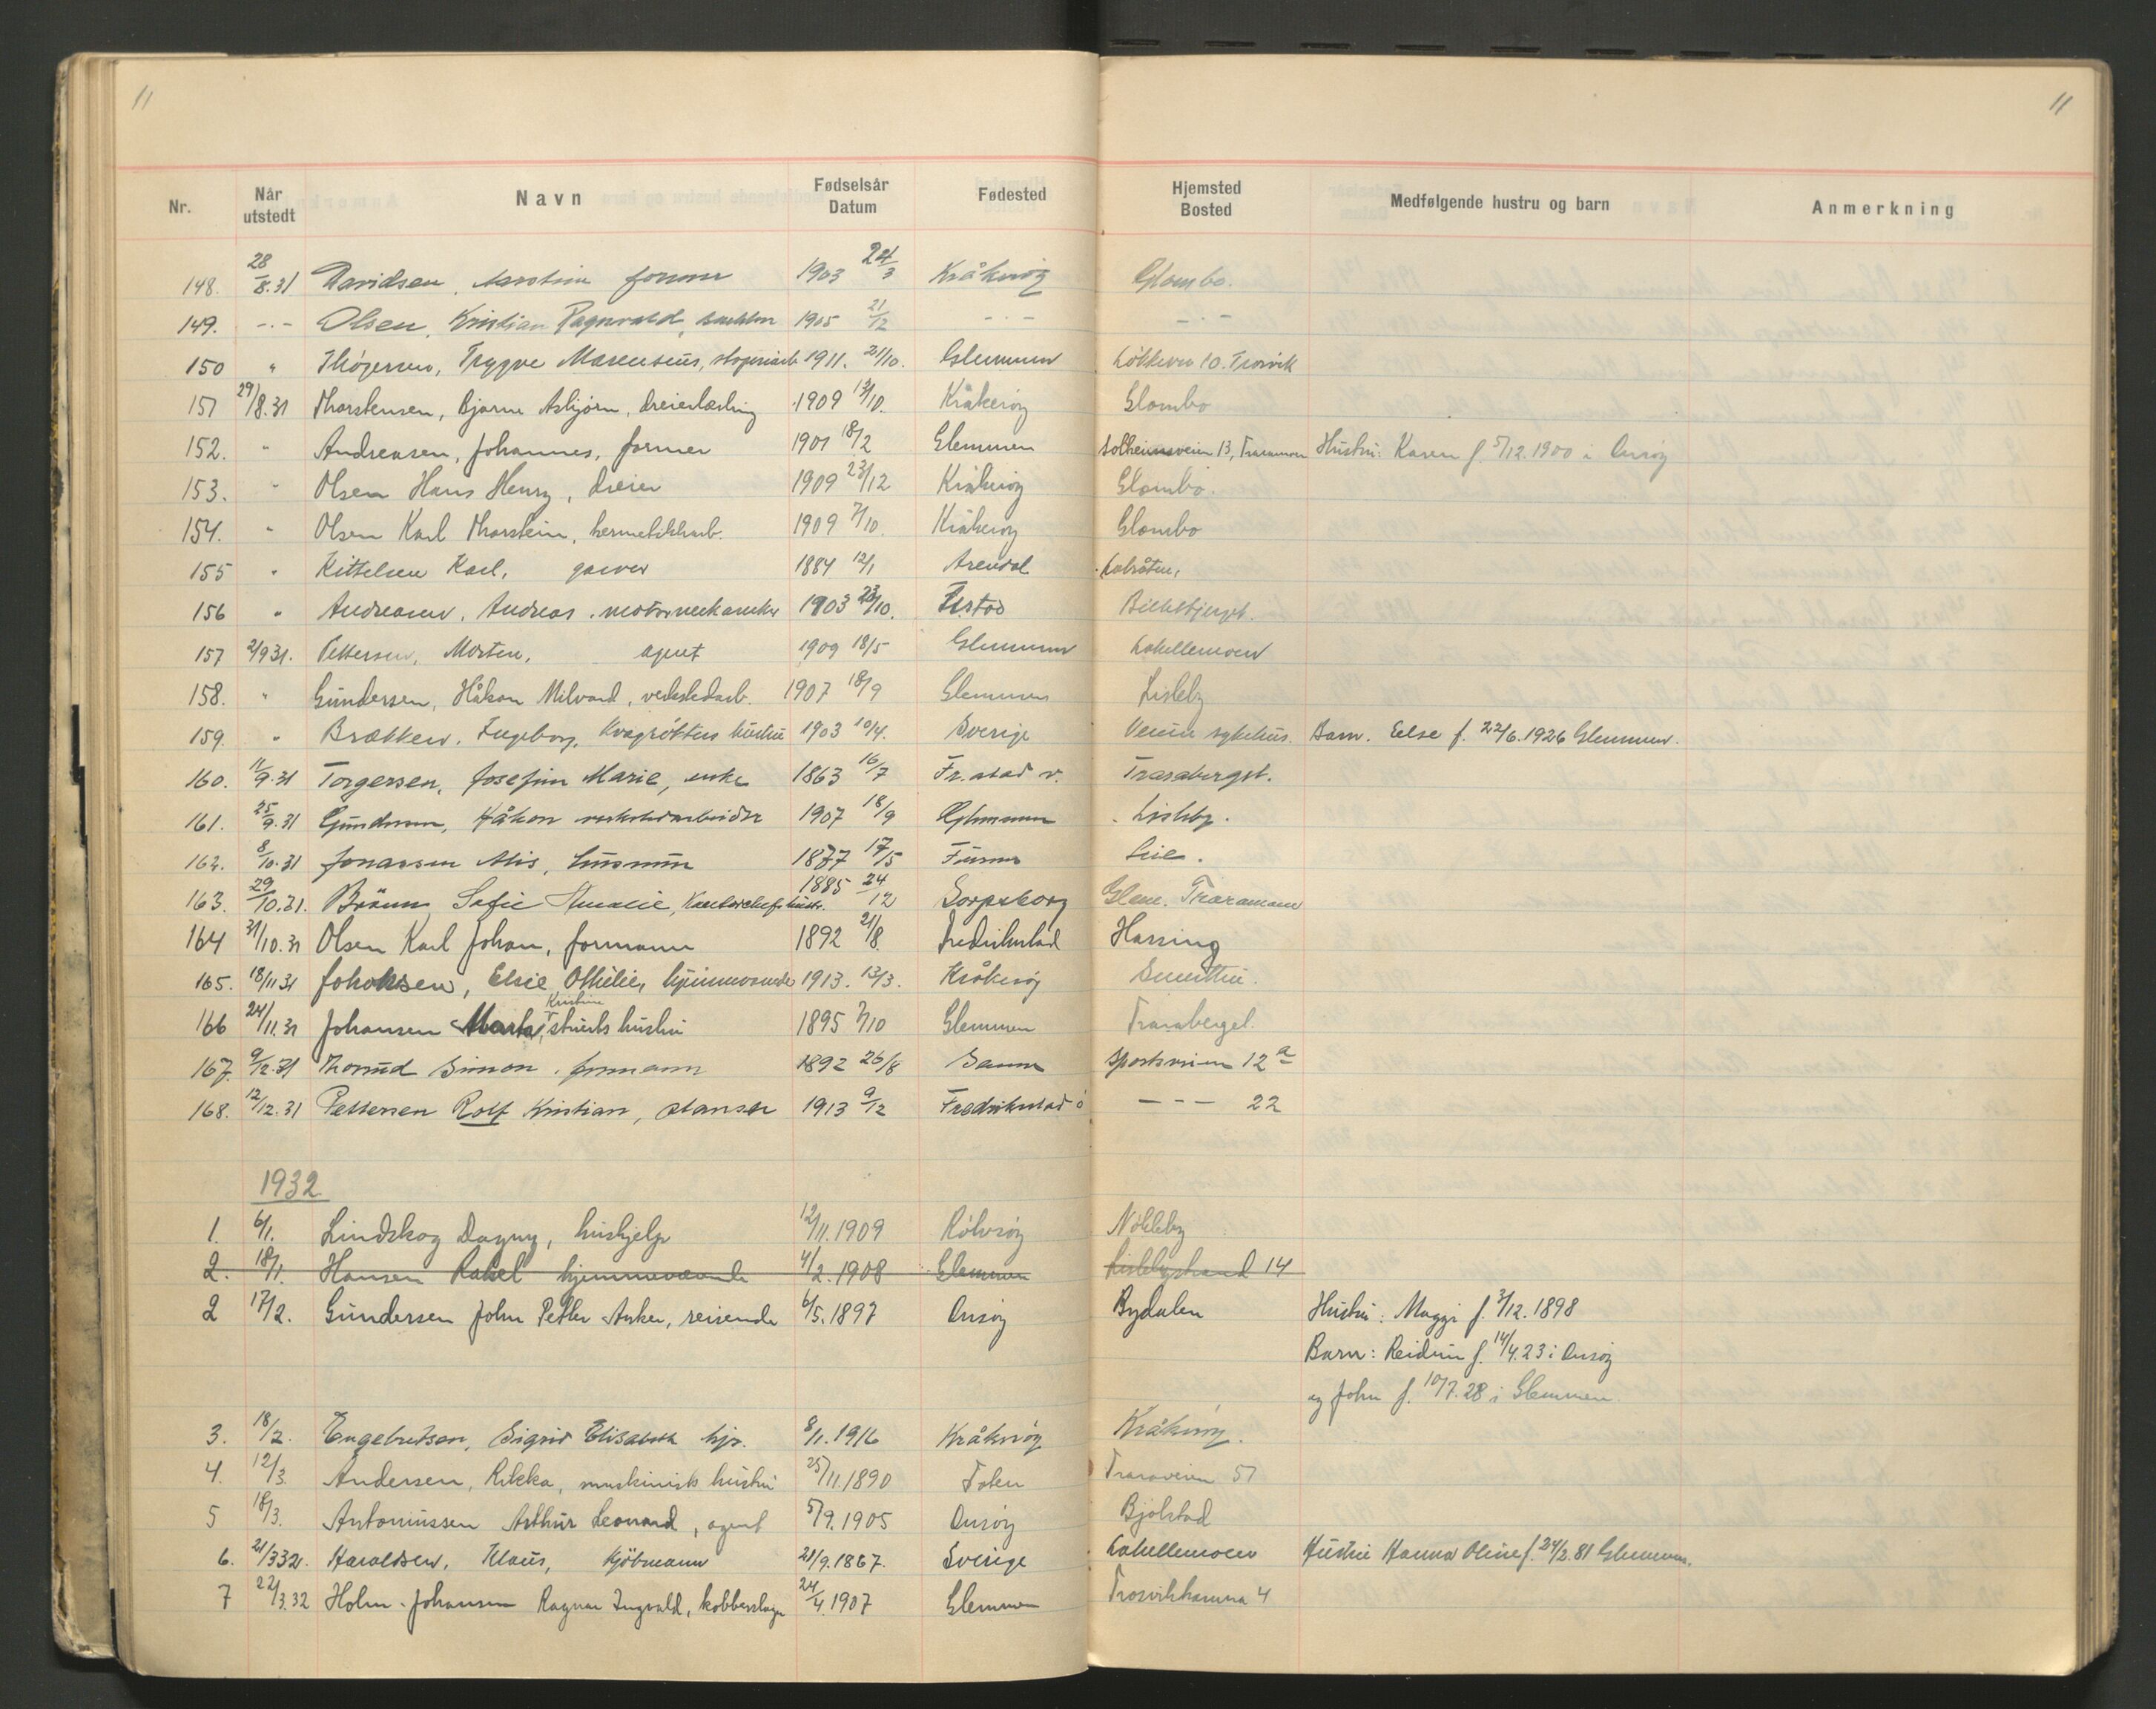 11
11
Nr. Når utstedt Navn Fødselsår Datum Fødested Hjemsted Bosted Medfølgende hustru og barn Anmerkning
148. 28/8.31 Davidsen, former 1903 24/3 Kråkerøy Glombo.
149. -.- Olsen, Kristian Ragnvald, 1905 21/12 -.- -.-
150 " Thøgersen, Trygve Marensius, 1911. 21/10. Glemmen Løkkevn 10. Trosvik
151 29/8.31 Thorstensen, Bjarne Asbjørn, dreierlærling 1909 13/10. Kråkerøy Glombo
152. " Andreasen, Johannes, former 1901 18/2 Glemmen Solheimsveien 13, Traramoen Hustru: Karen f. 5/12.1900 i Onsøy
153. " Olsen Hans Henry, dreier 1909 23/12 Kråkerøy Glombo.
154. " Olsen Karl Thorstein, hermetikkarb. 1909 7/10. Kråkerøy Glombo
155 " Kittelsen Karl, garver 1884 12/1 Arendal Labråten.
156 " Andreasen, Andreas, motormekaniker 1903 23/10. Bjerget.
157 2/9 31. Pettersen, Morten, agent 1909 18/5 Glemmen Lahellemoen
158. " Gundersen, Håkon Milvard, verkstedarb. 1907 18/9 Glemmen Lisleby
159. " Brækken, Ingeborg, hustru 1903 10/4. Sverige Veum sykehus. Barn. Else f. 22/6.1926 Glemmen.
160. 11/9.31 Torgersen, Josefine Marie, enke 1863 16/7 Fr.stad v. Traraberget.
161. 25/9.31 Gundersen, Håkon verkstedarbeider 1907 18/9 Glemmen Lisleby.
162. 8/10.31 Jonassen 1877 17/5 Lie.
163. 29/10.31. Brāun Sofie Amalie, 1885 24/12 Sarpsborg Glem. Traramoen
164 31/10.31 Olsen Karl Johan, formann 1892 21/8. Fredrikstad Hassing
165. 18/11 31 Elsie Othilie, hjemmeværende 1913. 13/3. Kråkerøy Smertu.
166 24/11.31 Johansen Marta Kristine, stuerts hustru 1895 7/10 Glemmen Traraberget.
167. 9/12.31 Thorud Simon, formann 1892 26/8 Sportsveien 12 a
168. 12/12.31 Pettersen Rolf Kristian, stanser 1913 9/12 Fredrikstad ö - - - 22
1932
1. 6/1. Lindskog Dagny, hushjelp 12/11.1909 Rolvsøy Nøkleby
2. 18/1. Hansen Rakel hjemmeværende 4/2.1908 Glemmen Lislebystrand 14
2 17/2. Gundersen John Petter Anker, reisende 6/5.1897 Onsøy Bydalen Hustru: Maggi f. 3/12.1898
Barn: Reidun f. 14/4.23 i Onsøy
og John f. 10/7.28 i Glemmen
3. 18/2. Engebretsen, Sigrid Elisabeth hjv. 8/1.1916 Kråkerøy Kråkerøy.
4. 12/3. Andersen, Rikka, maskinists hustru 25/11.1890 Toten Traraveien 51
5 18/3. Antoniussen Arthur Leonard, agent 5/9.1905 Onsøy Bjølstad
6. 21/3 32. Haraldsen, Klaus, kjöbmann 21/9.1867. Sverige Lahellemoen Hustru Hanna Oline f. 24/2.81 Glemmen.
7 22/3.32 Holm-Johansen Ragnar Ingvald, kobberslager 24/4.1907 Glemmen Trosvikhamna 4